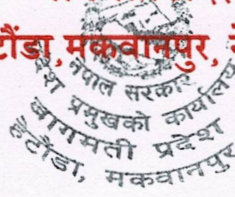 टौंडा, मकवानपुर,
नेपाल सरकार
प्रदेश प्रमुखको कार्यालय
बागमती प्रदेश
हेटौंडा, मकवानपुर